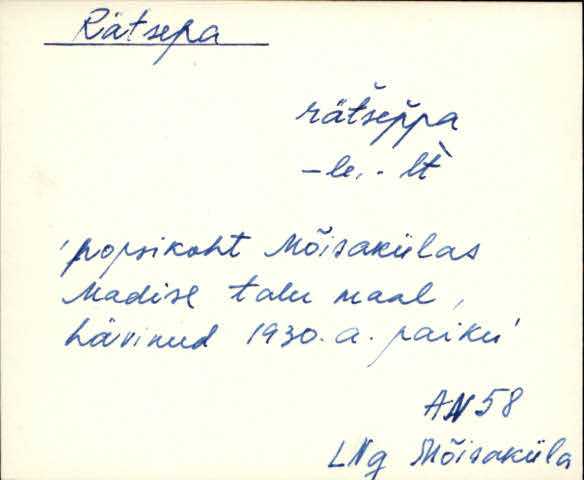 Rätsepa
rätšeppa
-le, - lt
'popsikoht Mõisakülas
Madise talu maal,
hävinud 1930. a. paiku'
AN 58
LNg Mõisaküla